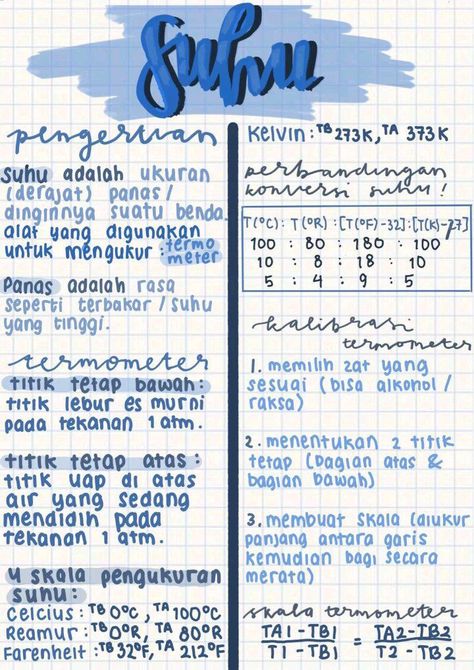 suhu
pengertian
suhu adalah ukuran
(derajat) panas /
dinginnya suatu benda.
alat yang digunakan
untuk mengukur : termo
meter
Panas adalah rasa
seperti terbakar / suhu
yang tinggi.
termometer
titik tetap bawah :
titik lebur es murni
pada tekanan 1 atm.
titik tetap atas :
titik uap di atas
air yang sedang
mendidih pada
tekanan 1 atm.
4 skala pengukuran
suhu :
Celcius : TB 0°C, TA 100°C
Reamur : TB 0°R, TA 80°R
Farenheit : TB 32°F, TA 212°F
Kelvin : TB 273K, TA 373K
perbandingan
konversi suhu !
T(°C) : T(°R) : [T(°F)-32] : [T(K)-27]
100 : 80 : 180 : 100
10 : 8 : 18 : 10
5 : 4 : 9 : 5
kalibrasi
termometer
1. memilih zat yang
sesuai (bisa alkohol /
raksa)
2. menentukan 2 titik
tetap (bagian atas &
bagian bawah)
3. membuat skala (diukur
panjang antara garis
kemudian bagi secara
merata)
skala termometer
TA1 - TB1 = TA2 - TB2
T1 - TB1 T2 - TB2